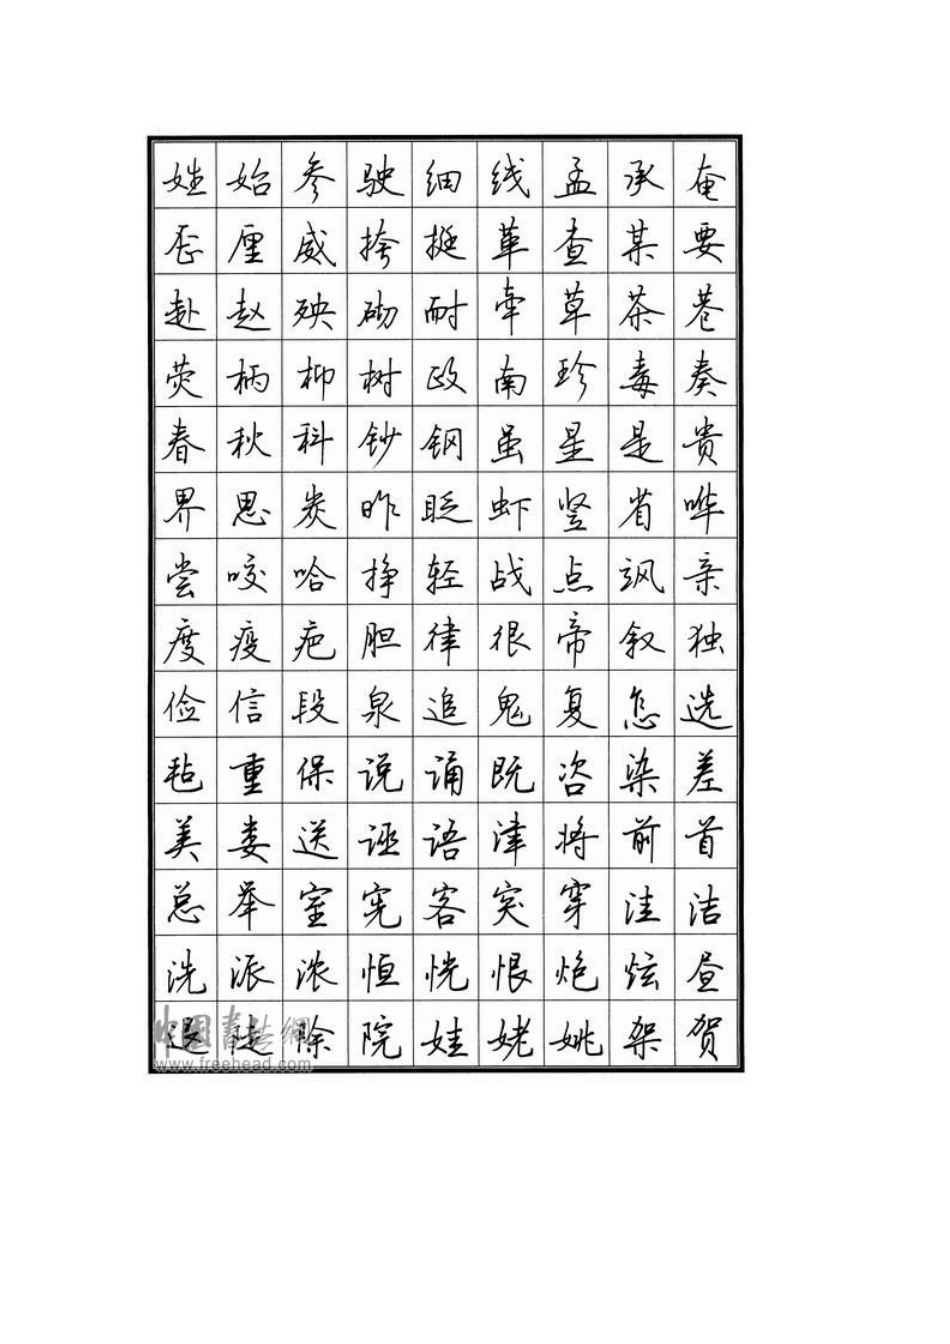 姓始参驶细线孟承奄
歪厘威挎挺革查某要
赴赵殃砌耐牵草茶巷
荧柄柳树政南珍毒奏
春秋科钞钢虽星是贵
界思炭昨眨虾竖省哗
尝咬哈挣轻战点飒亲
度疫疤胆律很帝叙独
俭信段泉追鬼复怎选
毡重保说诵既咨染差
美娄送诬语津将前首
总举室宪客突穿洼洁
洗派浓恒恍恨炮炫昼
退陡除院娃姥姚架贺
中国书法網
www.freehead.com